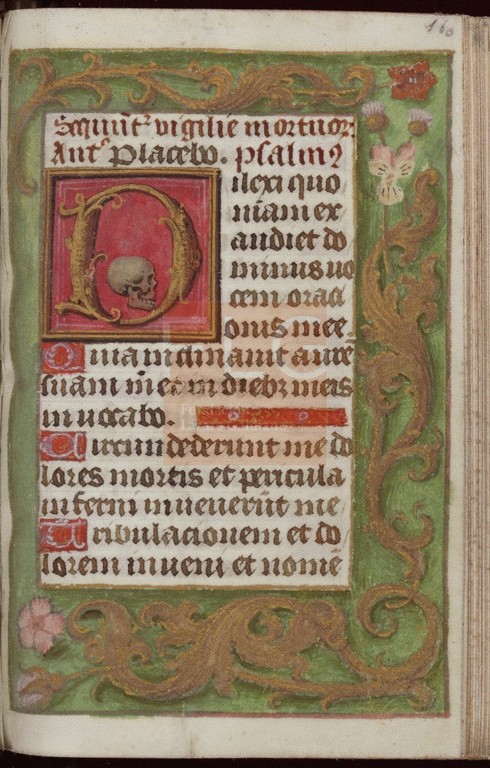 160
Sequūt᷑ vigilie mortuoꝝ.
Ant̾ Placebo. psalmꝰ
Dilexi quo
niam ex
audiet do
minus uo
cem oraci
onis mee.
Quia inclinauit aurē
suam m̄ et in diebꝫ meis
inuocabo.
Circumdederunt me do
lores mortis et pericula
inferni inuenerūt me
Tribulacionem et do
lorem inueni et nomē